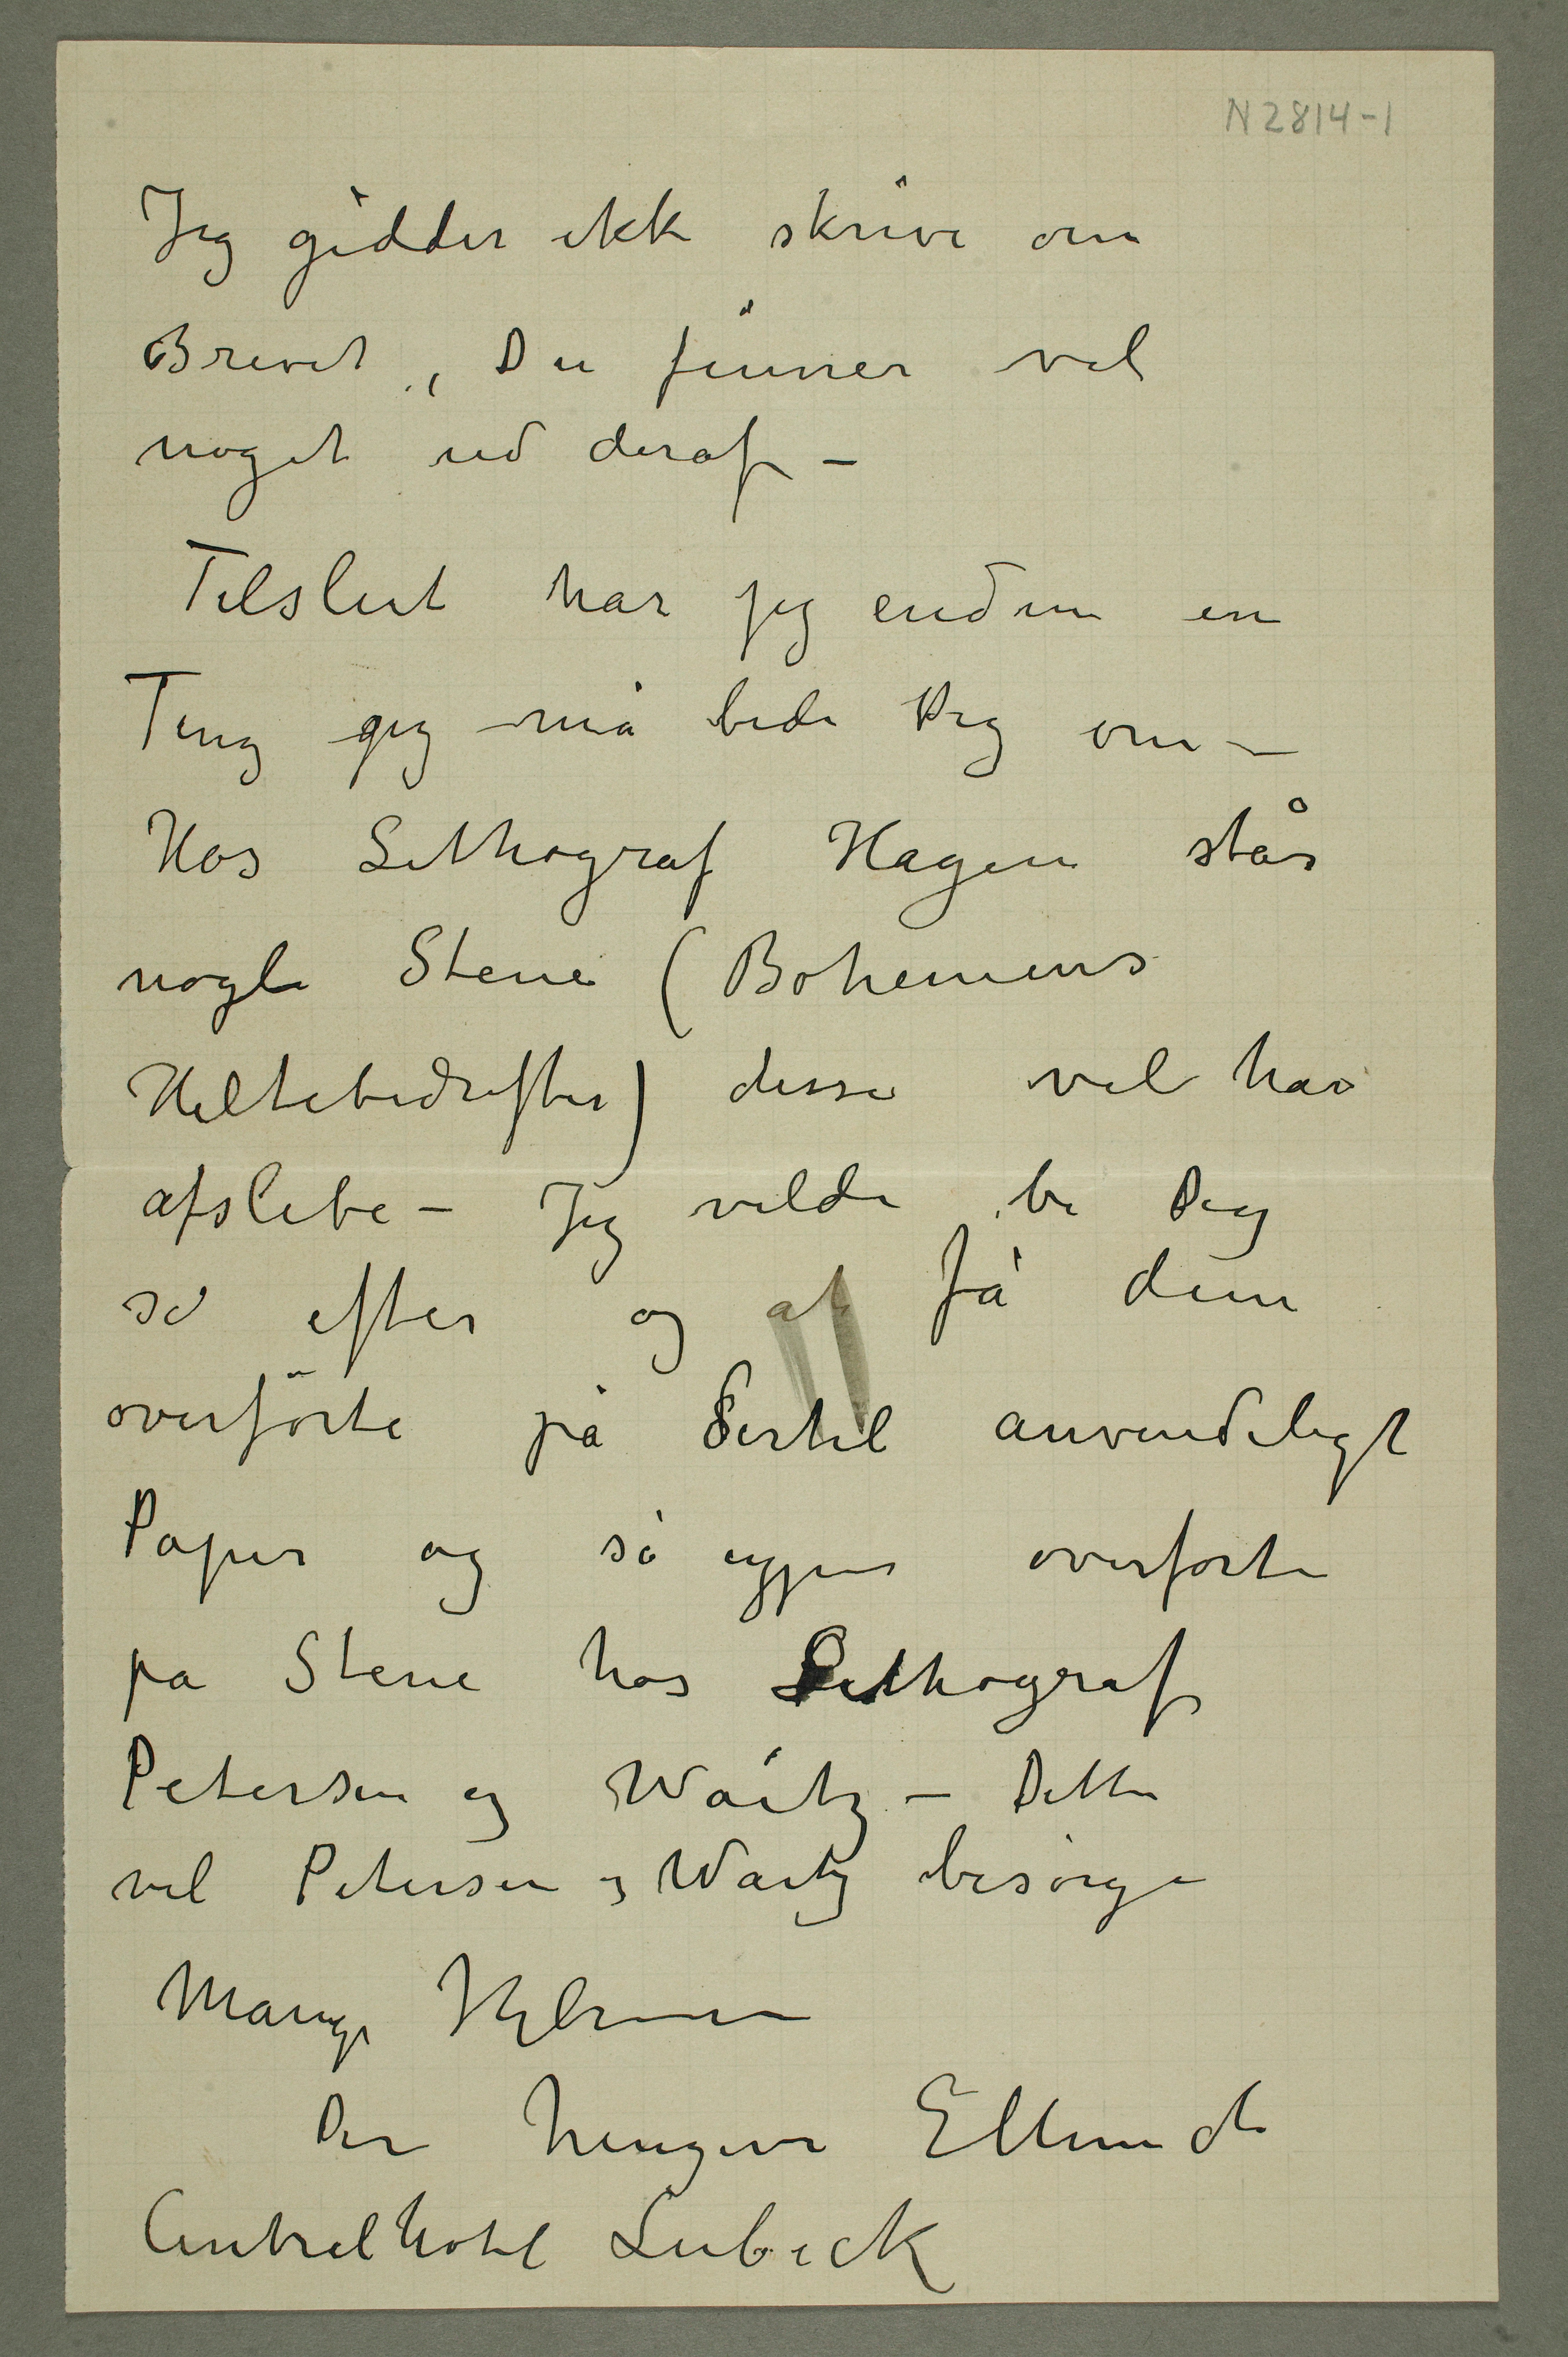 N 2814-1
Jeg gidder ikke skrive om
Brevet, Du finner vel
noget ud deraf –
Tilslut har jeg endnu en
Ting jeg må bede Dig om –
Hos Lithograf Hagen står
nogle Stene (Bohemens
Heltebedrifter) disse vil han
afslibe – Jeg vilde be Dig
se efter og at få dem
overførte på dertil anvendeligt
Papir og så igjen overførte
på Stene hos Lithograf
Petersen og Waitz – Dette
vil Petersen og Waitz besørge
Mange Hilsener
Din hengivne E Munch
Centralhotel Lübeck